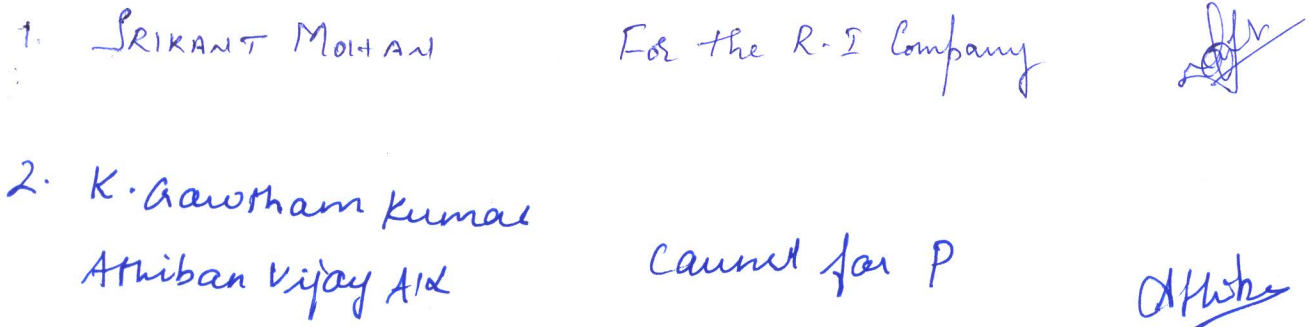 1. SRIKANT MOHAN For the R.I Company
2. K. Gawtham Kumar
Athiban Vijay AK Counsel for P